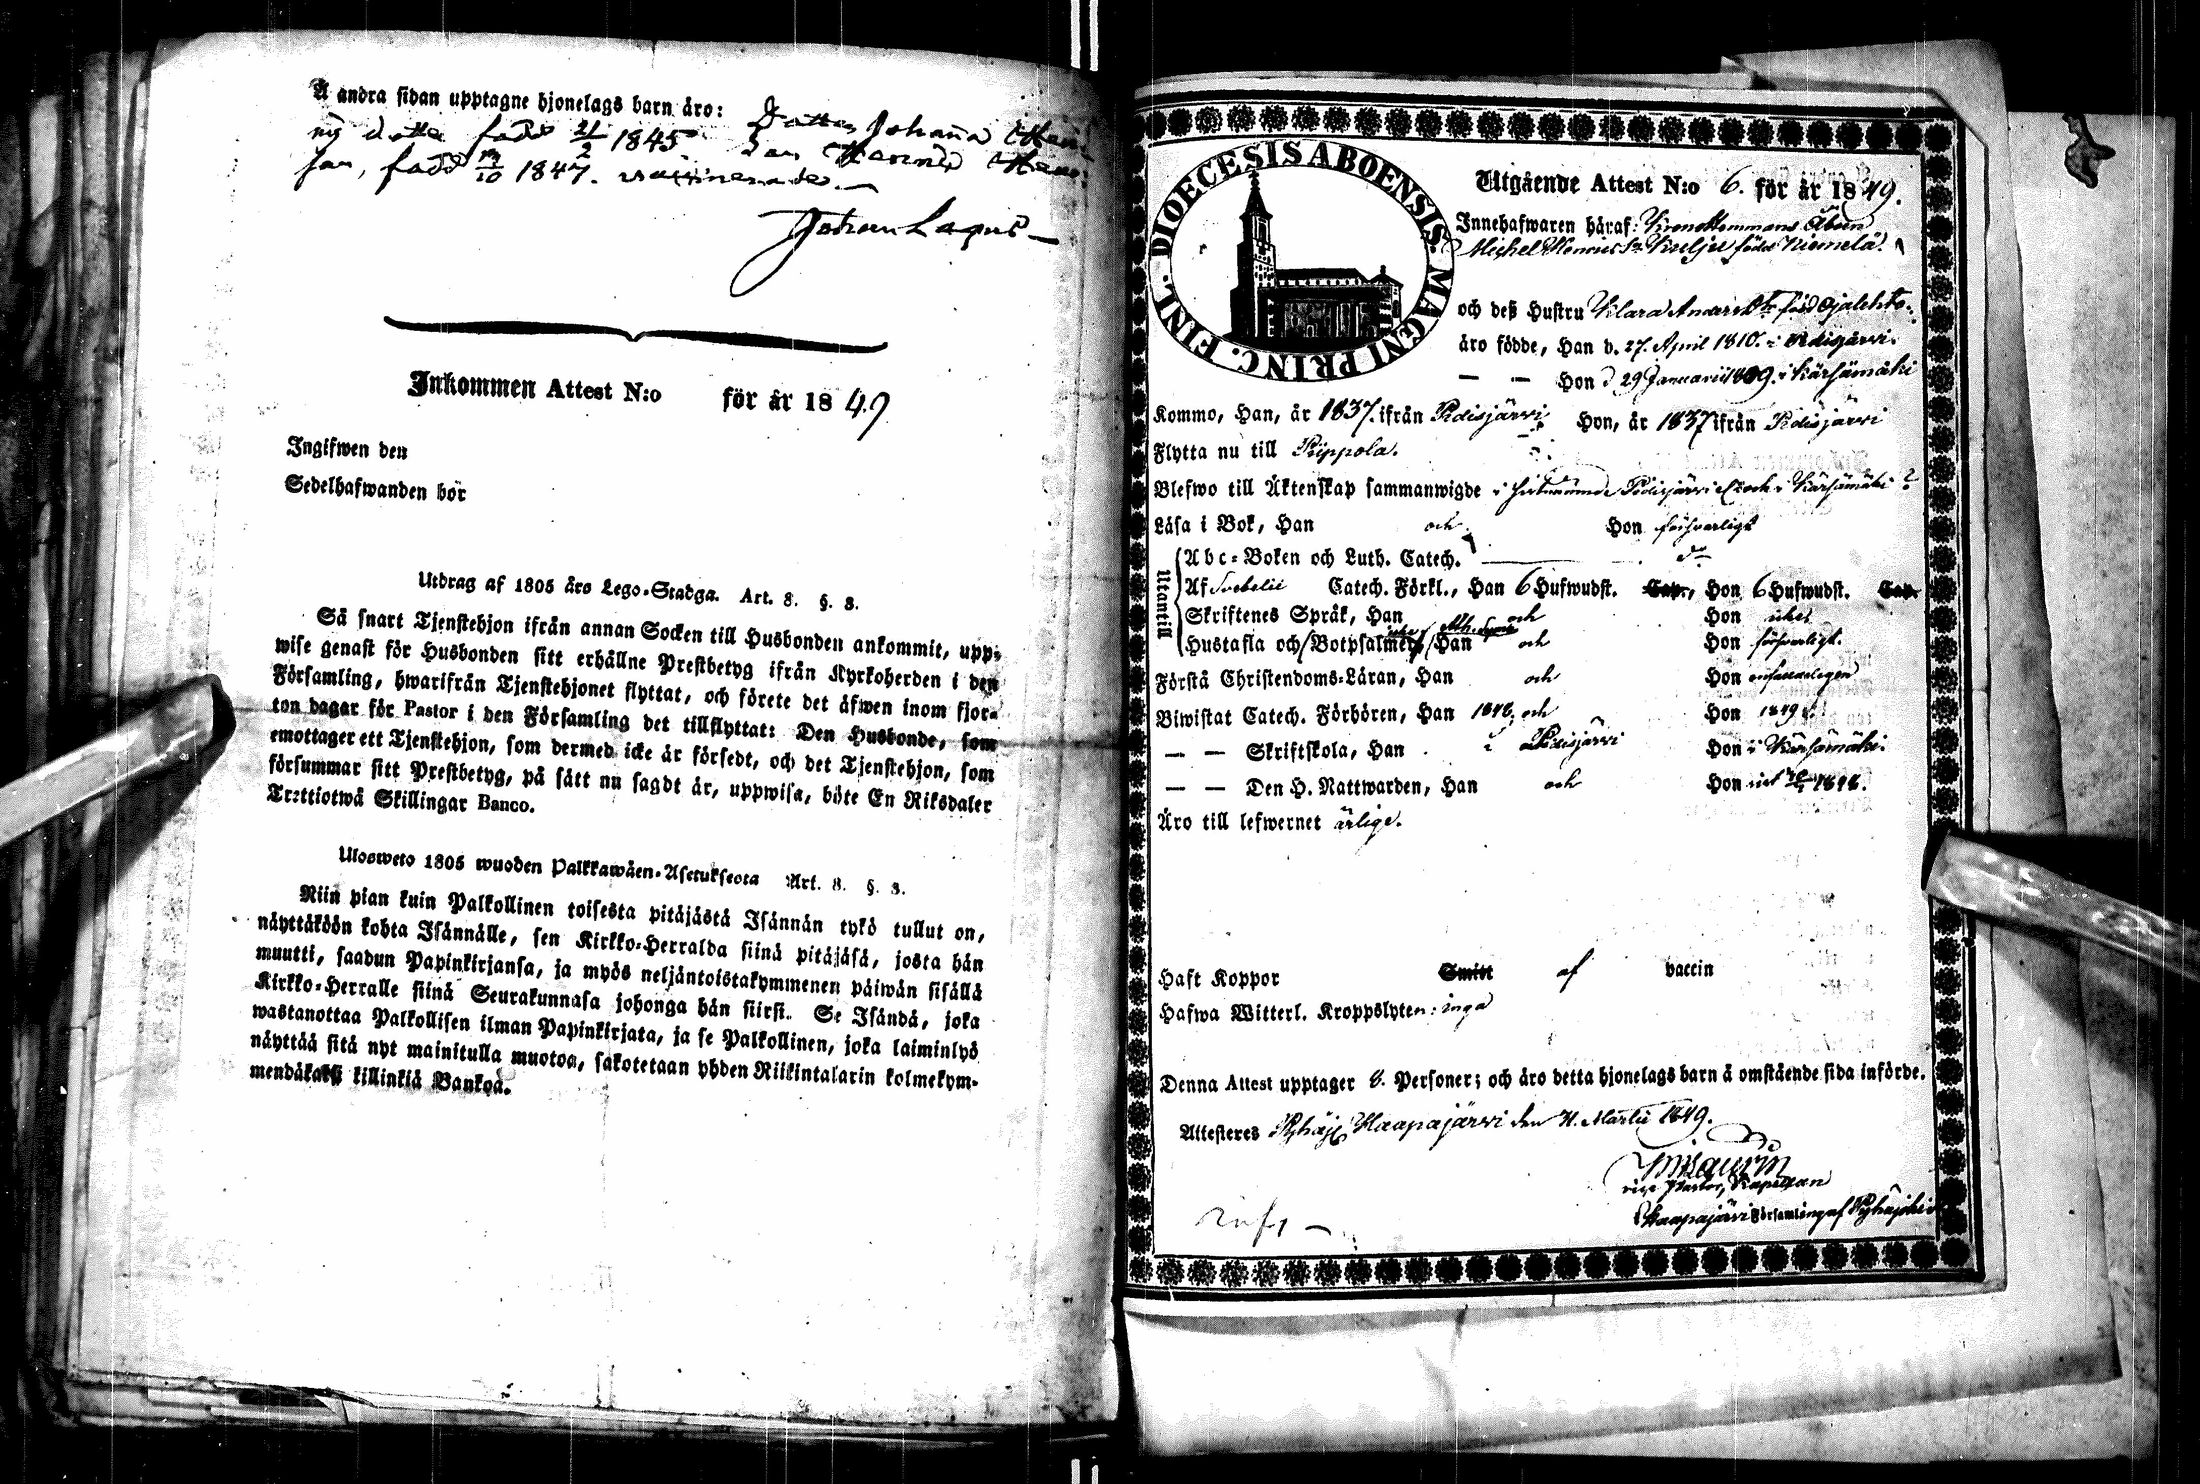 Å andra sidan upptagne hjonelags barn äro: Dottren Johanna Hen-
rics dotter född 21/2 1845 Son Henric Hen-
son, född 19/10 1847. vaccinerade.
Johan Lagus
Inkommen Attest N:o för år 1849
Ingifwen den
Sedelhafwanden bör
Utdrag af 1805 års Lego-Stadga. Art. 8. §. 8.
Så snart Tjenstehjon ifrån annan Socken till Husbonden ankommit, upp-
wise genast för Husbonden sitt erhållne Prestbetyg ifrån Kyrkoherden i den
Församling, hwarifrån Tjenstehjonet flyttat, och förete det äfwen inom fjor-
ton dagar för Pastor i den Församling det tillflyttat: Den Husbonde, som
emottager ett Tjenstehjon, som dermed icke är försedt, och det Tjenstehjon, som
försummar sitt Prestbetyg, på sätt nu sagdt är, uppwisa, böte En Riksdaler
Trettiotwå Skillingar Banco.
Ulosweto 1805 wuoden Palkkawäen-Asetuksesta Art. 8. §. 8.
Niin pian kuin Palkollinen toisesta pitäjästä Isännän tykö tullut on,
näyttäköön kohta Isännälle, sen Kirkko-Herralda siinä pitäjäsä, josta hän
muutti, saadun Papinkirjansa, ja myös neljäntoistakymmenen päiwän sisällä
Kirkko-Herralle siinä Seurakunnasa johonga hän siirsi. Se Isändä, joka
wastanottaa Palkollisen ilman Papinkirjata, ja se Palkollinen, joka laiminlyö
näyttää sitä nyt mainitulla muotoa, sakotetaan yhden Riikintalarin kolmekym-
mendäkaksi killinkiä Bankoa.
DIOECESIS ABOENSIS MAGNI PRINC. FINL.
Utgående Attest N:o 6. för år 1849.
Innehafwaren häraf: Kronohemmans Åboen
Michel Henrics Sr Kuelju född Niemelä.
och dess Hustru Klara Anders Dr född Ojalehto.
äro födde, Han d. 27. April 1810. i Pidisjärvi.
— — Hon d 29 Januarii 1809. i Kärsämäki
Kommo, Han, år 1837. ifrån Pidisjärvi Hon, år 1837 ifrån Pidisjärvi
Flytta nu till Piippola.
Blefwo till Äktenskap sammanwigde i Pidisjärvi och i Kärsämäki
Läsa i Bok, Han och Hon försvarligt
Utantill
Abc-Boken och Luth. Catech. do
Af Svebelii Catech. Förkl., Han 6 Hufwudst. Cap., Hon 6 Hufwudst. Cap.
Skriftenes Språk, Han och Hon icke
Hustafla och Botpsalmer, Han och Hon försvarligt.
Förstå Christendoms-Läran, Han och Hon enfaldeligen
Biwistat Catech. Förhören, Han 1848, och Hon 1849
— — Skriftskola, Han i Pidisjärvi Hon i Kärsämäki.
— — Den H. Nattwarden, Han och Hon 1848.
Äro till lefwernet ärlige.
Haft Koppor Smitt af vaccin
Hafwa Witterl. Kroppslyten: inga
Denna Attest upptager 8. Personer; och äro detta hjonelags barn å omstående sida införde.
Attesteres Pyhäj. Haapajärvi den 31. Martii 1849.
vice Pastor, Kapellan
Haapajärvi Församling af Pyhäjoki